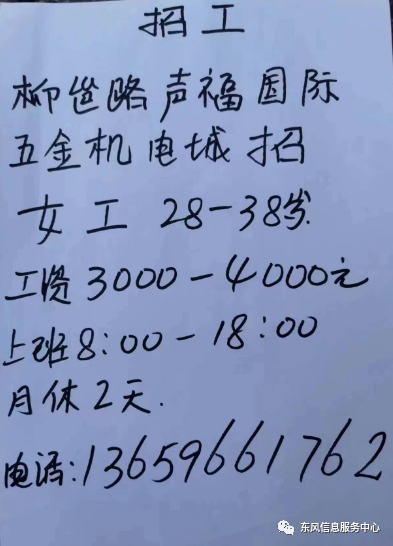 招工
柳邕路声福国际
五金机电城招
女工 28-38岁.
工资3000-4000元
上班8:00-18:00
月休2天.
电话:13659661762
东风信息服务中心